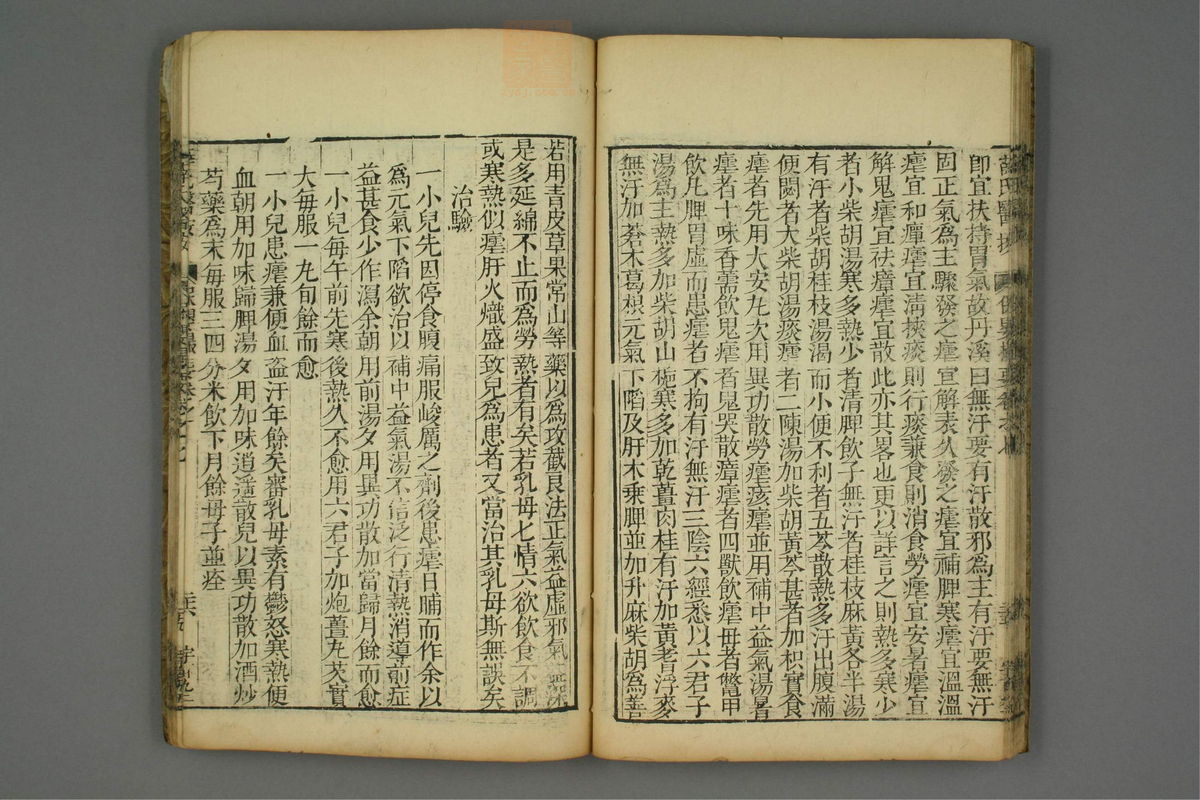 薛氏醫按 保嬰撮要卷之七
卽宜扶持胃氣故丹溪曰無汗要有汗散邪為主有汗要無汗
因正氣為主驟發之瘧宜解表久發之瘧宜補脾寒瘧宜溫溫
瘧宜和癉瘧宜清挾痰則行痰兼食則消食勞瘧宜安暑瘧宜
解鬼瘧宜祛瘴瘧宜散此亦其畧也更以詳言之則熱多寒少
者小柴胡湯寒多熱少者清脾飲子無汗者桂枝麻黃各半湯
有汗者柴胡桂枝湯渴而小便不利者五苓散熱多汗出腹滿
便閟者大柴胡湯痰瘧者二陳湯加柴胡黃芩甚者加枳實食
瘧者先用大安丸次用異功散勞瘧痎瘧並用補中益氣湯暑
瘧者十味香薷飲鬼瘧者鬼哭散瘴瘧者四獸飲瘧毋者鱉甲
飲凡脾胃虛而患瘧者不拘有汗無汗三陰六經悉以六君子
湯為主熱多加柴胡山梔寒多加乾薑肉桂有汗加黃耆浮麥
無汗加蒼朮葛根元氣下陷及肝木乘脾並加升麻柴胡為善
若用青皮草果常山等藥以為攻截良法正氣益虛邪氣
是多延綿不止而為勞熱者有矣若乳母七情六欲飲食不調
或寒熱似瘧肝火熾盛致兒為患者又當治其乳母斯無誤矣
治驗
一小兒先因停食腹痛服峻厲之劑後患瘧日晡而作余以
為元氣下陷欲治以補中益氣湯不信泛行清熱消導前症
益甚食少作瀉余朝用前湯夕用異功散加當歸月餘而愈
一小兒每午前先寒後熱久不愈用六君子加炮薑丸芡實
大每服一丸旬餘而愈
一小兒患瘧兼便血盜汗年餘矣審乳母素有鬱怒寒熱便
血朝用加味歸脾湯夕用加味逍遙散兒以異功散加酒炒
芍藥為末每服三四分米飲下月餘母子並痊